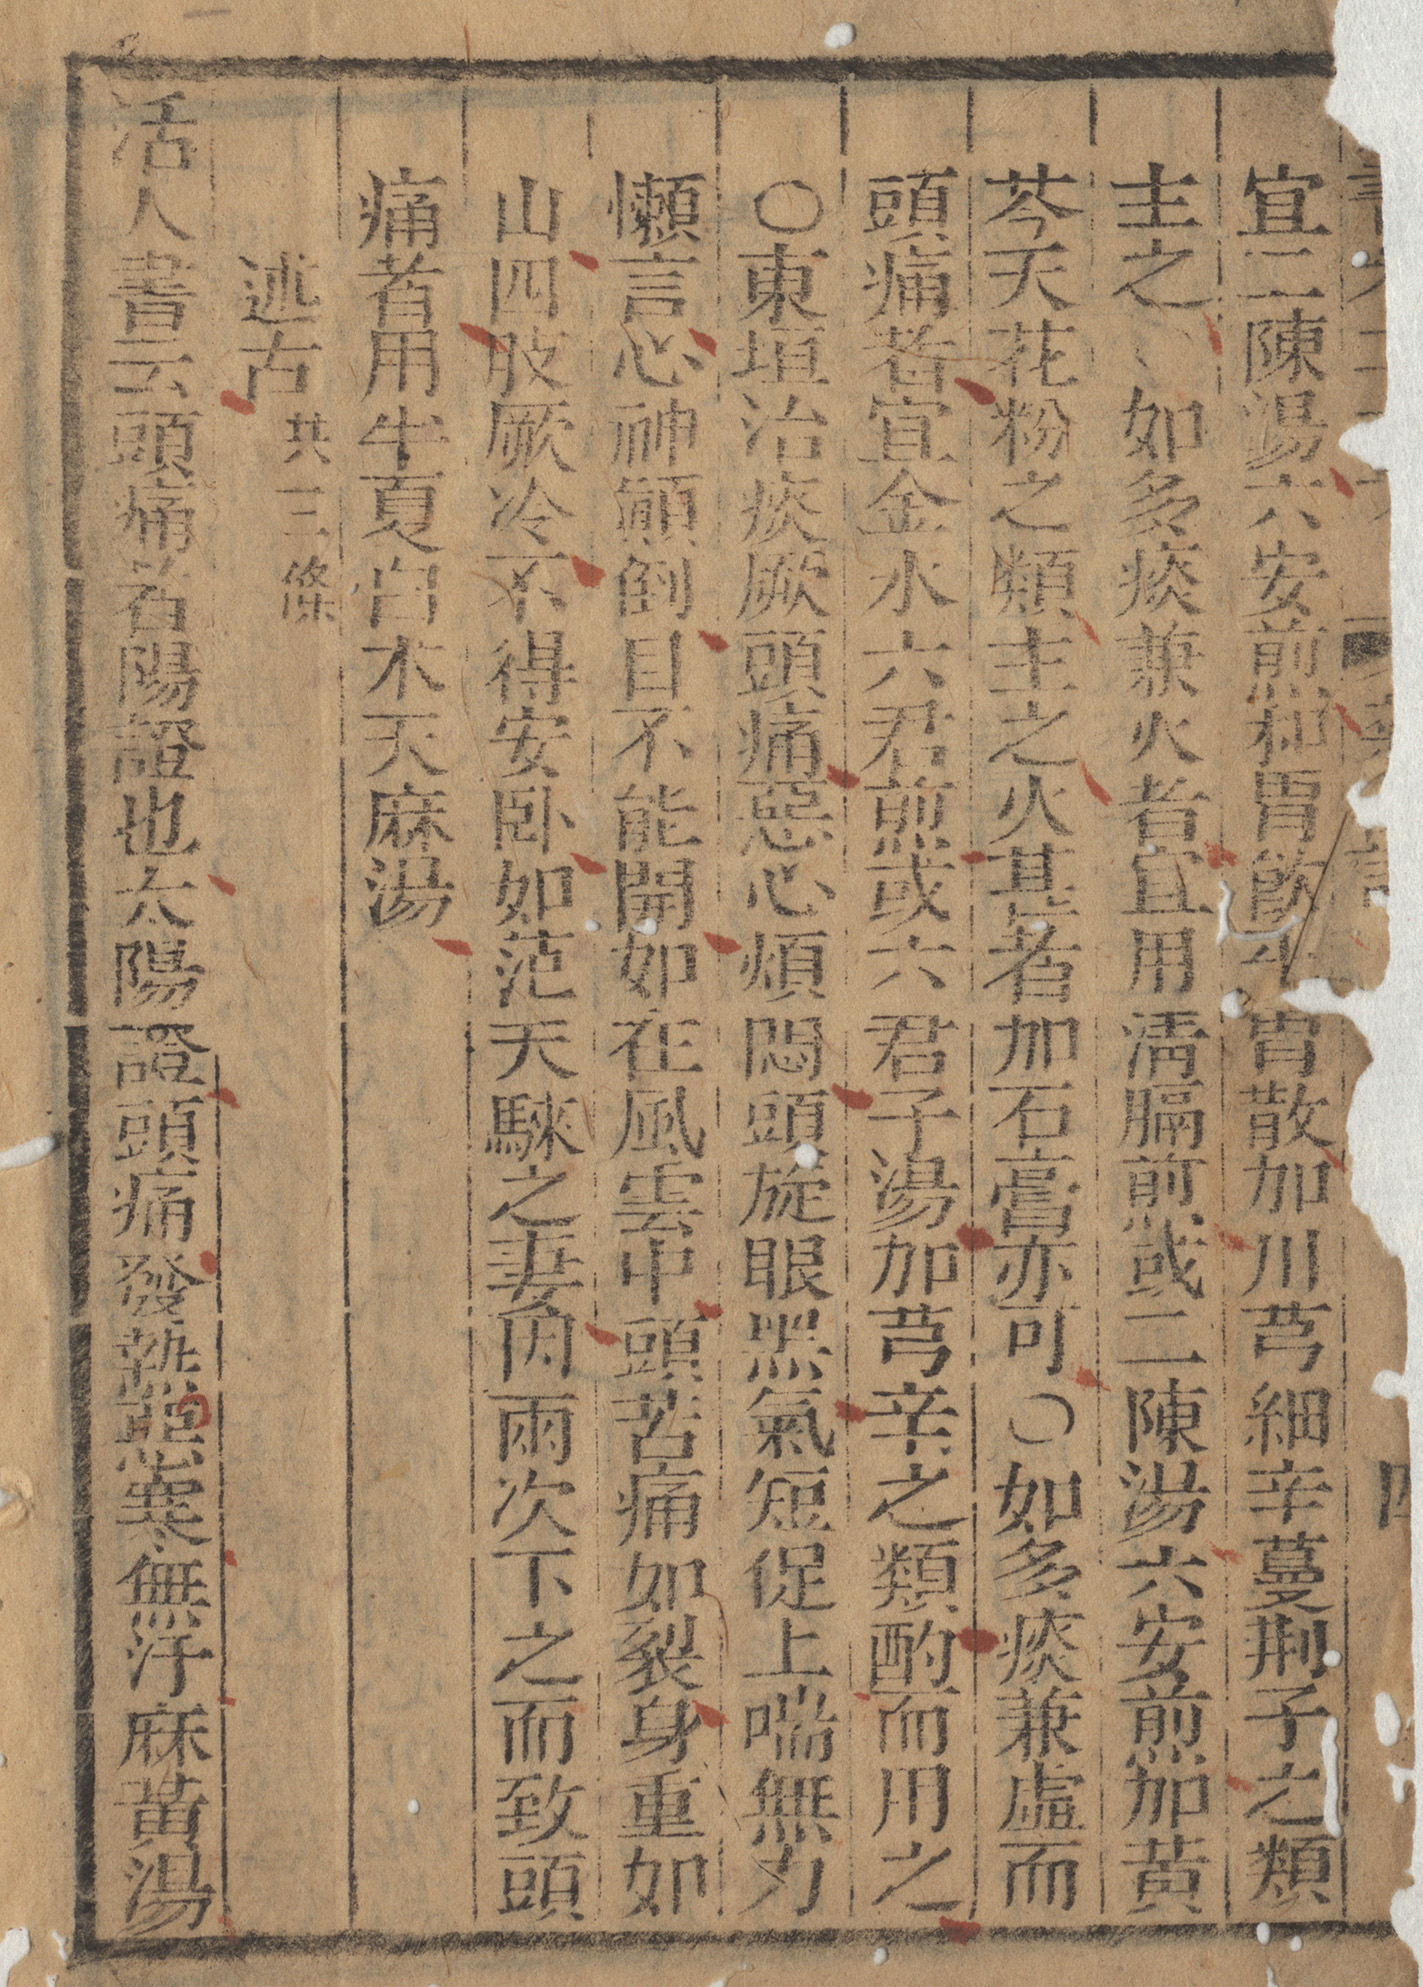 宜二陳湯六安煎和胃飲平胃散加川芎細辛蔓荆子之類
主之○如多痰兼火者宜用清膈煎或二陳湯六安煎加黄
芩天花粉之類主之火甚者加石膏亦可○如多痰兼虛而
頭痛者宜金水六君煎或六君子湯加芎辛之類酌而用之
○東垣治痰厥頭痛惡心煩悶頭旋眼黑氣短促上喘無力
懶言心神顛倒目不能開如在風雲中頭苦痛如裂身重如
山四肢厥冷不得安卧如范天騋之妻因兩次下之而致頭
痛者用半夏白术天麻湯
述古共三條
活人書云頭痛者陽證也太陽證頭痛發熱惡寒無汗麻黄湯